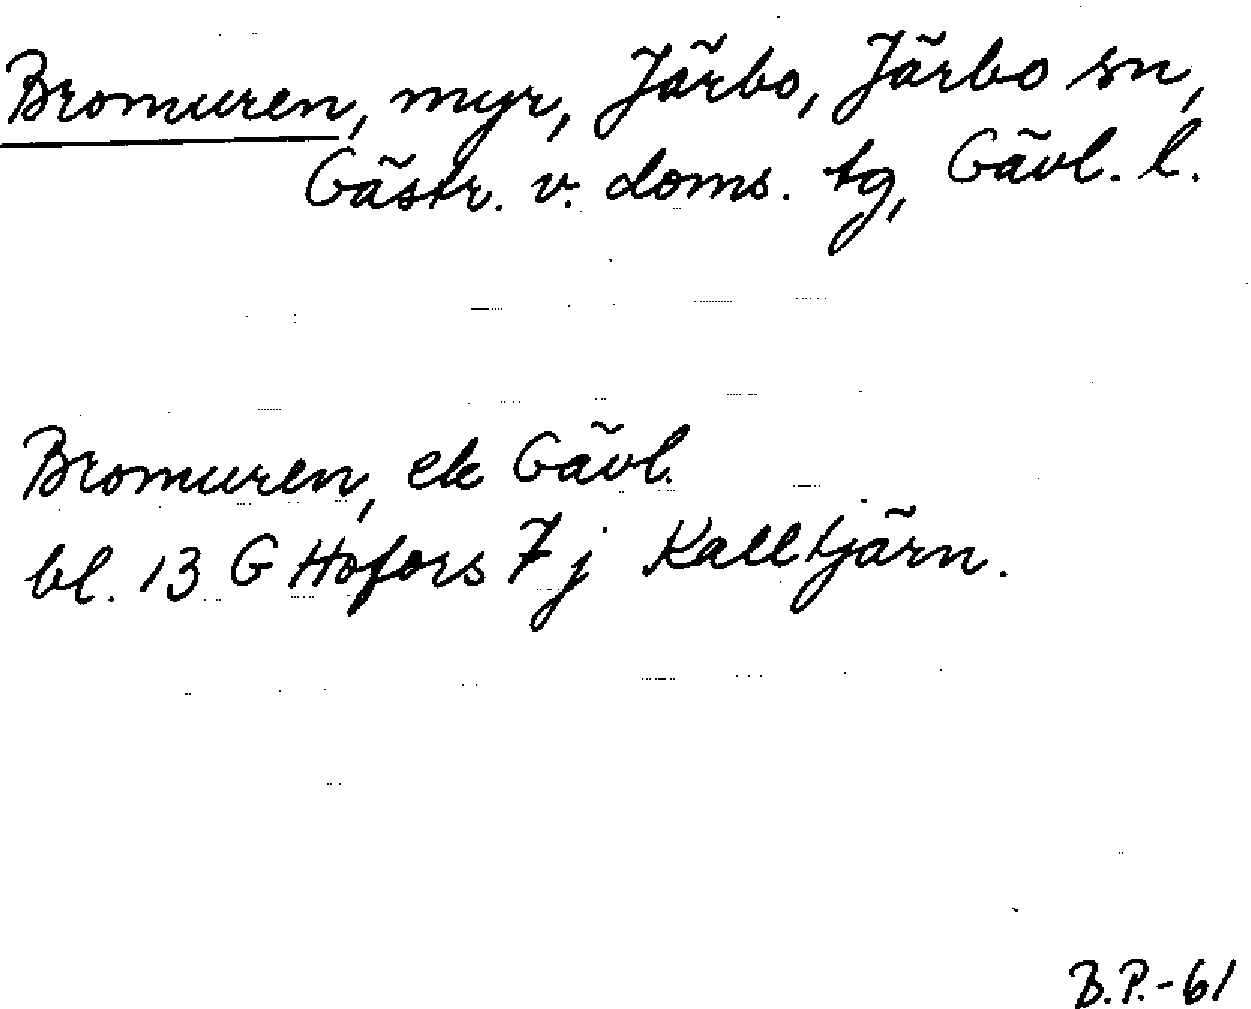 Bromuren, myr, Järbo, Järbo sn,
Gästr. v. doms. tg, Gävl. l.
Bromuren, ek Gävl.
bl. 13 G Hofors 7 j Kalltjärn.
B.P.-61